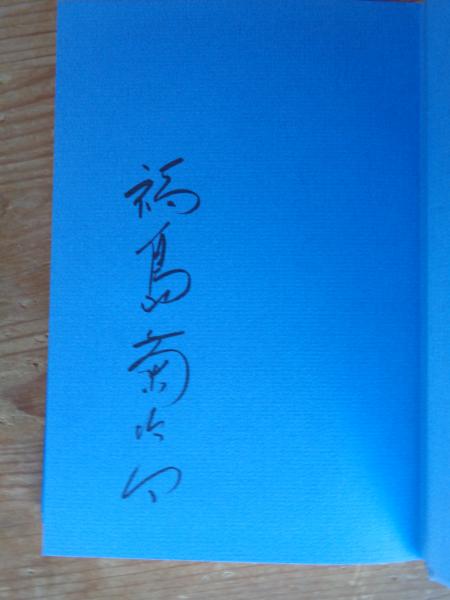 福島菊次郎